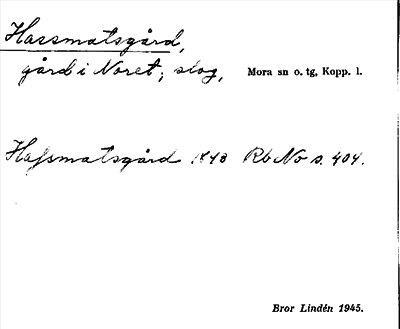 Hassmatsgård,
gård i Noret; slog, Mora sn o. tg, Kopp. l.
Hassmatsgård 1848 Rb No s. 404.
Bror Lindén 1945.